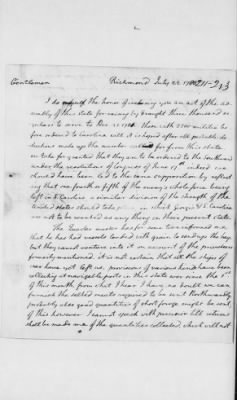 Richmond July 22. 1780
211-213
Gentlemen
I do myself the honor of inclosing you an act of the as
sembly of this state for raising by draught three thousand re
-gulars to serve to Dec. 31. 1781. these with 2500 militia be
fore ordered to Carolina will it is hoped after all probable de
-ductions make up the number called for from this state.
we take for granted that they are to be ordered to the Southward
under the resolution of Congress of June 17th indeed we
should have been led to the same supposition by reflect
ing that one fourth or fifth of the enemy's whole force being
left in S. Carolina a similar division of the strength of the
United states should take place in which Georgia & S. Carolina
are not to be counted as any thing in their present state.
The Quarter master has for some time informed me
that he has had vessels loaded with grain to send up the bay
but they cannot venture into it on account of the privateers
formerly mentioned. it is not certain that all the ships of
war have yet left us. provisions of various kinds have been
collecting at navigable ports in this state ever since the 1st
of this month from what I hear I have no doubt we can
furnish the salted meats required to be sent Northwardly
probably also good quantities of short forage might be sent.
of this however I cannot speak with precision till returns
shall be made me of the quantities collected, which will not